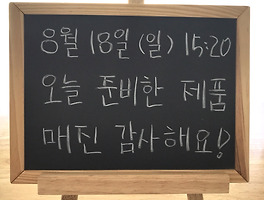 8월 18일 (일) 15:20
오늘 준비한 제품
매진 감사해요!